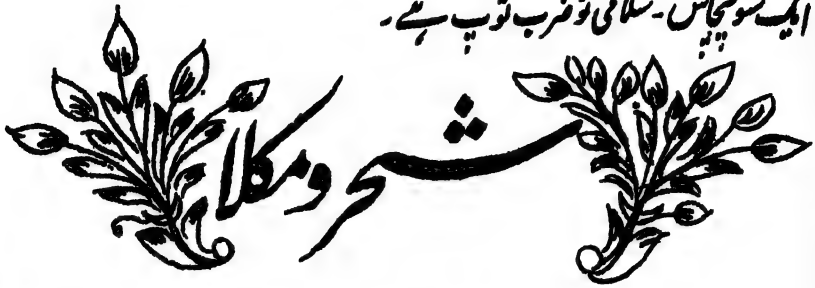 ایک سو پچاس۔ سلامی نو ضرب توپ ہے۔
شحر و مکلا